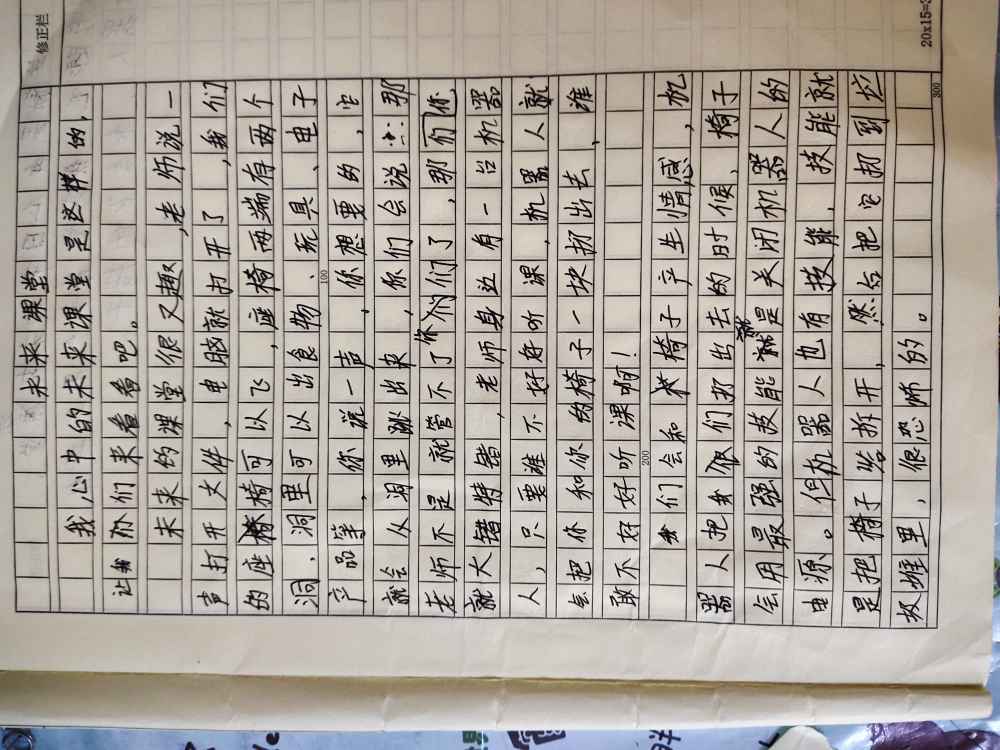 修正栏
未来课堂
我心中的未来课堂是这样的,
让我们来看看吧。
未来的课堂很又趣,老师说一
声打开文件,电脑就打开了,我们
的座椅可以飞,座椅两端有两个
洞,洞里可以出食物、玩具、电子
100
产品等,你说一声,你想要的,它
就会从洞里跳出来,你们会说:那
老师不是就管不了你们了,那们你
就大错特错,老师身边有一台机器
人,只要谁不好好听课,机器人就
会把你和你的椅子一块扔出去,谁
敢不好好听课啊!
200
我们会和椅子产生情感,机
器人把我们扔出去的时候,椅子
会用最强的技能就是关闭机器人的
电源。但机器人也有技能,技能就
是把椅子给拆开,然后把它扔到垃
圾堆里,很恐怖的。
300
20x15=3